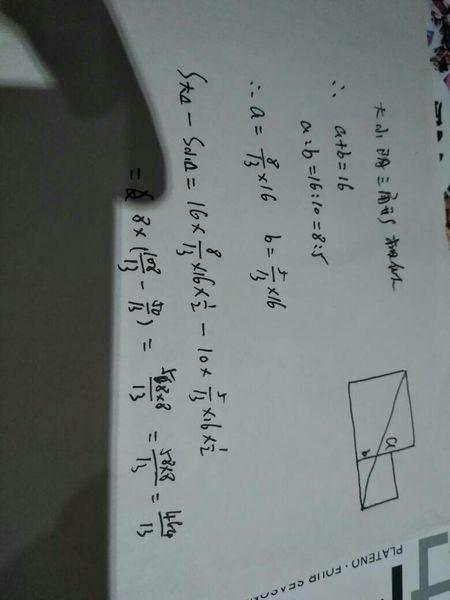 大小两三角形相似
∴ a+b=16
a:b=16:10=8:5
∴ a=8/13×16 b=5/13×16
S大△-S小△=16×8/13×16×1/2-10×5/13×16×1/2
=8×(108/13-50/13)=58×8/13=58×8/13=464/13
a
b
PLATENO·FOUR SEASON